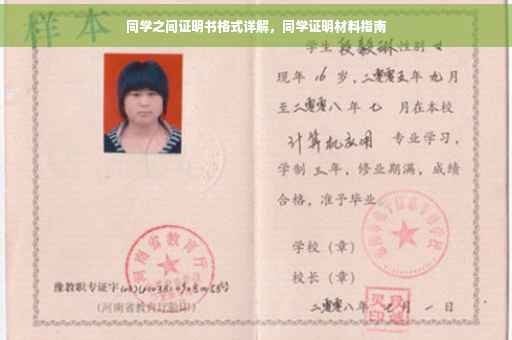 同学之间证明书格式详解，同学证明材料指南
样本
学生段毅琳性别女
现年16岁，二零零五年九月
至二零零八年七月在本校
计算机应用 专业学习，
学制三年，修业期满，成绩
合格，准予毕业。
学校（章）
校长（章）
二零零八年七月一日
河南省教育厅
豫教职专证字
（河南省教育厅验印）